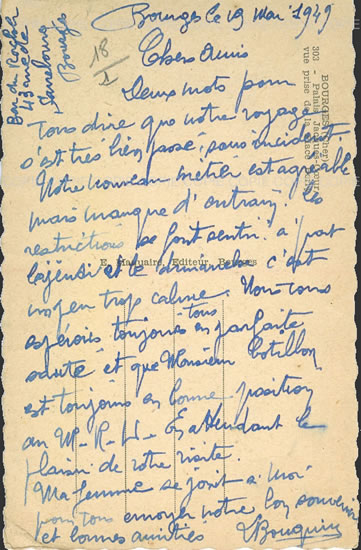 Bourges le 19 Mai 1949
Bar du Rocher
43 avenue
Bourges
18
1
Chers Amis
Deux mots pour
vous dire que notre voyage
s'est très bien passé sans incident.
Notre nouveau métier est agréable
mais manque d'entrain, les
restrictions se font sentir. à part
le jeudi et le dimanche c'est
un peu trop calme. Nous vous
espérons toujours tous en parfaite
santé et que Monsieur Cotillon
est toujours en bonne position
au M.R.U. En attendant le
plaisir de votre visite.
Ma femme se joint à moi
pour vous envoyer notre bon souvenir
et bonnes amitiés
Bouquin
BOURGES (Cher)
303 - Palais Jacques-Cœur
vue prise de la place
E. Maquaire, Editeur, Bourges